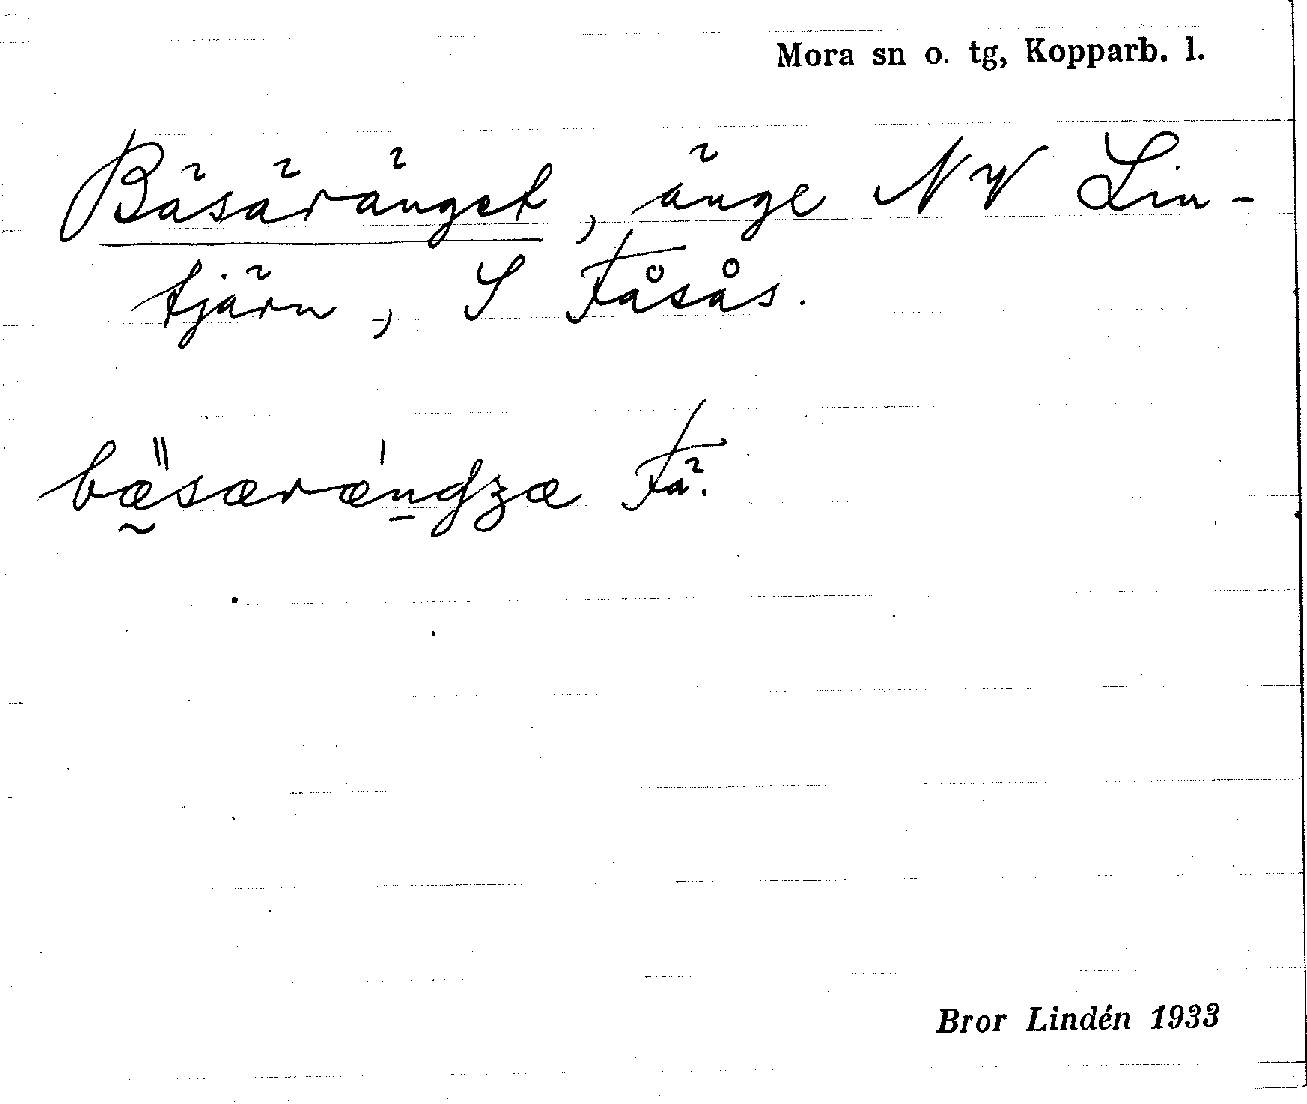 Mora sn o. tg, Kopparb. l.
Bäsäränget, änge NV Lin-
tjärn, S Fåsås.
bæ̰̎særæ̍n̠ʤzæ Fä.
Bror Lindén 1933